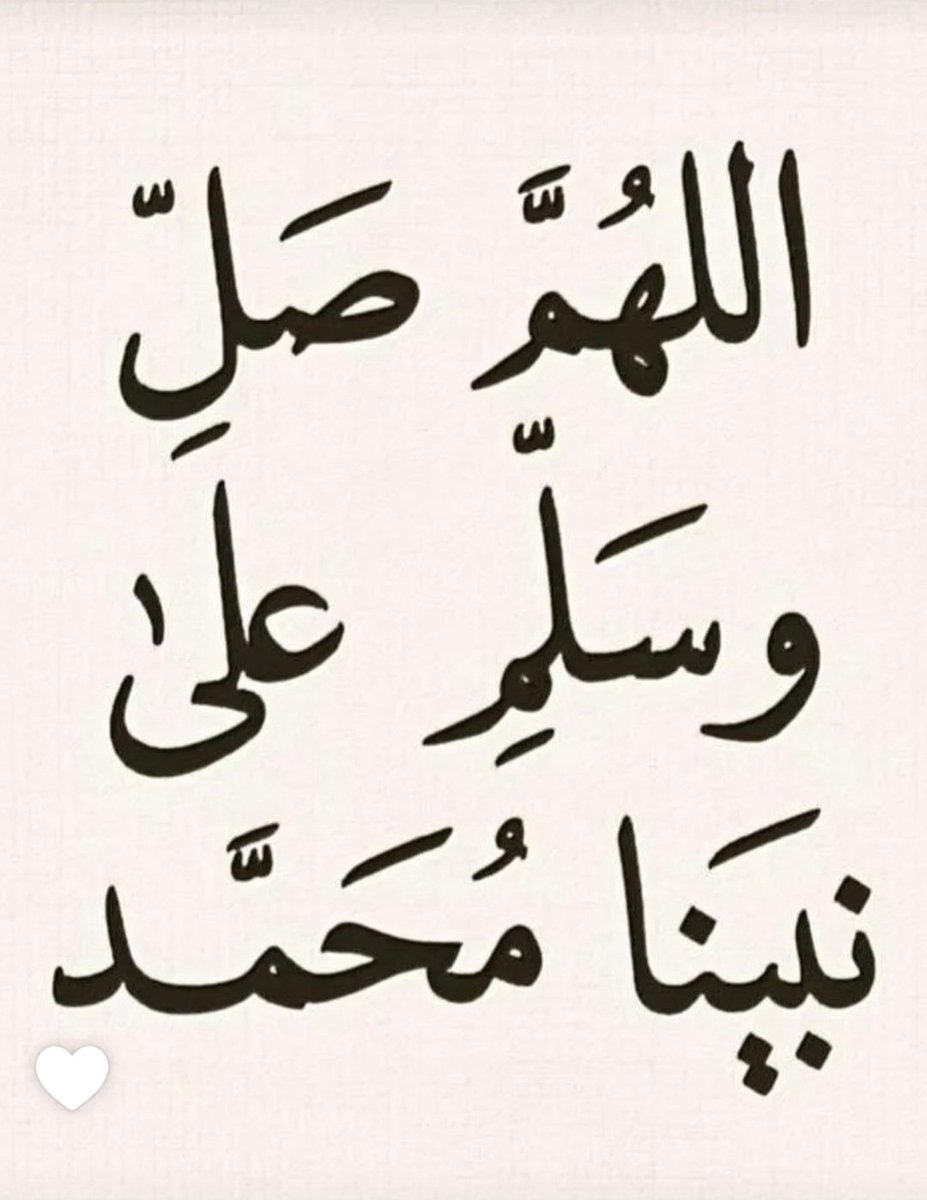 اللهُمَّ صَلِّ
وسَلِّم علىٰ
نبينَا مُحَمَّد